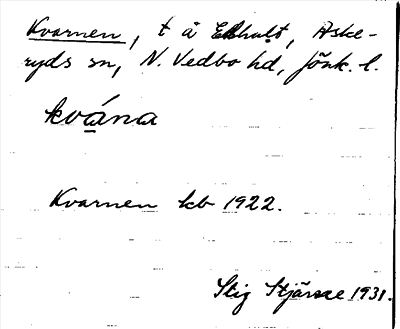 Kvarnen, t å Ekhult, Aske-
ryds sn, N. Vedbo hd, Jönk. l.
kvána
Kvarnen kb 1922.
Stig Stjärne 1931.